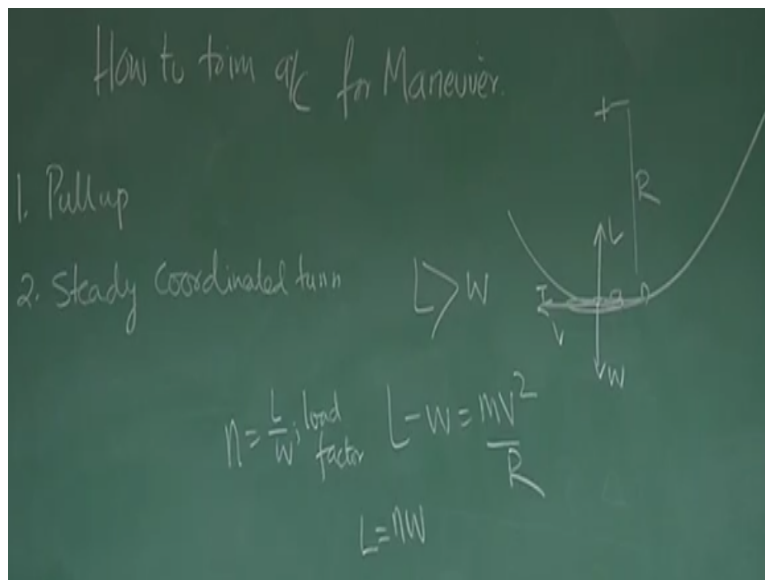 How to trim a/c for Maneuver.
1. Pullup
2. Steady Coordinated turn
L > W
R
L
T
V
W
n = L/W ; load factor
L - W = mV²/R
L = nW